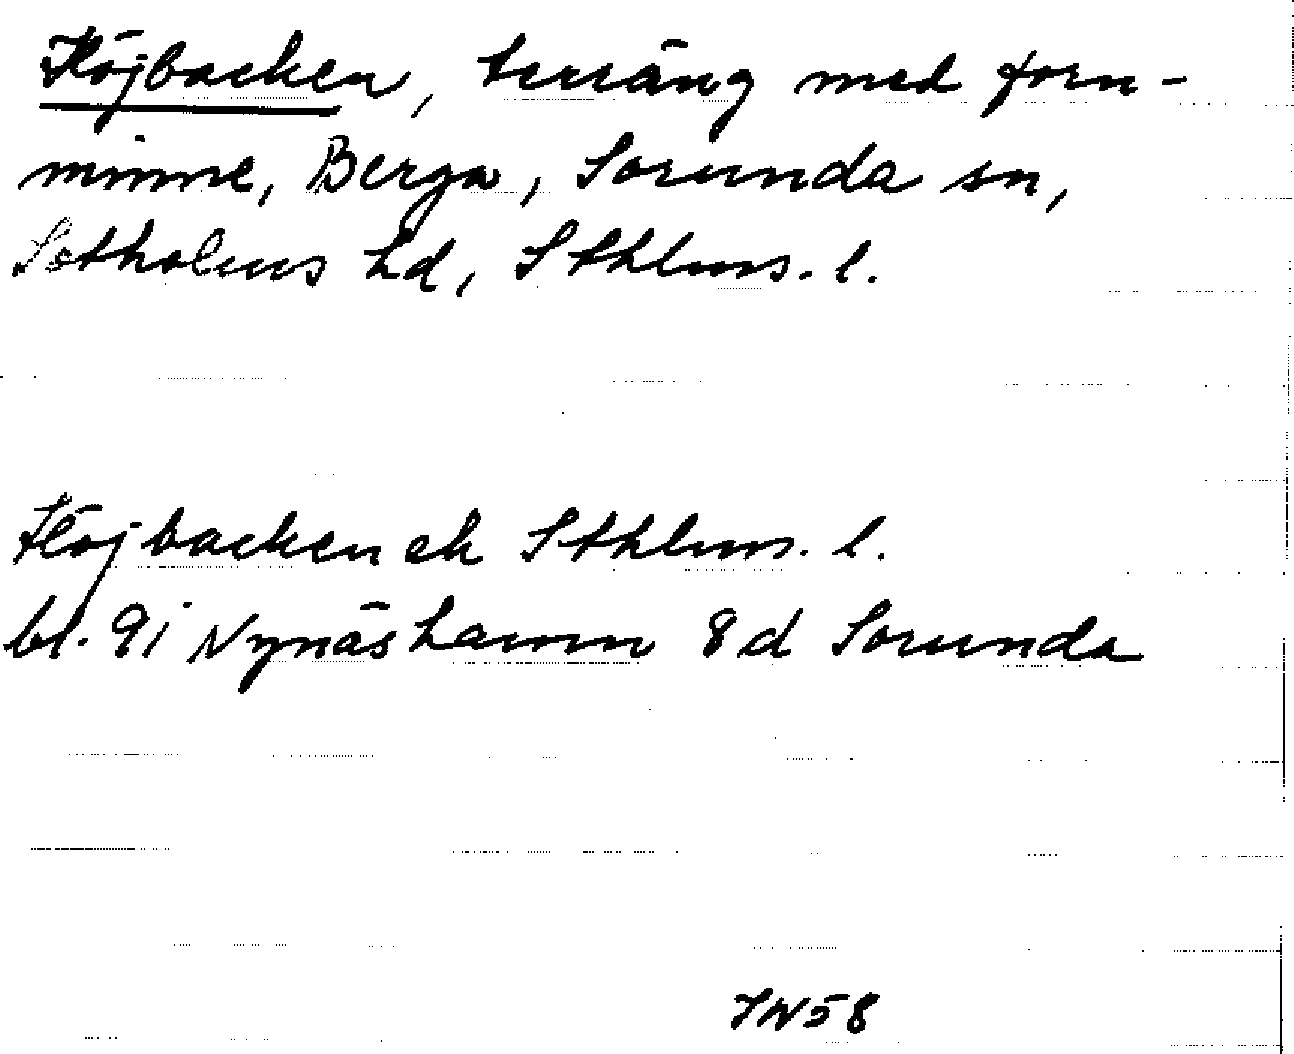 Höjbacken, terräng med forn-
minne, Berga, Sorunda sn,
Sotholms hd, Sthlms. l.
Höjbacken ek Sthlms. l.
bl. 9i Nynäshamn 8d Sorunda